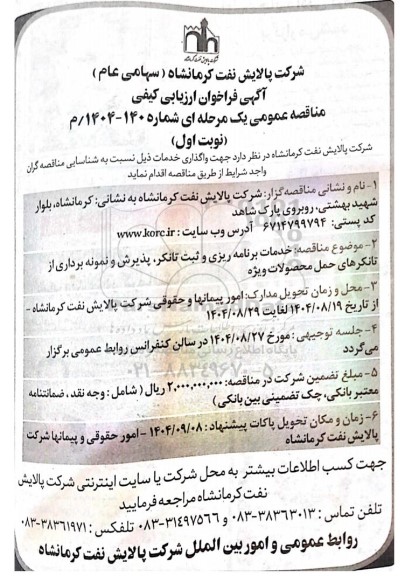 شرکت پالایش نفت کرمانشاه ( سهامی عام )
آگهی فراخوان ارزیابی کیفی
مناقصه عمومی یک مرحله ای شماره ۱۴۰-۱۴۰۴/م
(نوبت اول)
شرکت پالایش نفت کرمانشاه در نظر دارد جهت واگذاری خدمات ذیل نسبت به شناسایی مناقصه گران
واجد شرایط از طریق مناقصه اقدام نماید
۱- نام و نشانی مناقصه گزار: شرکت پالایش نفت کرمانشاه به نشانی: کرمانشاه، بلوار
شهید بهشتی، روبروی پارک شاهد
کد پستی: ۶۷۱۴۷۹۹۷۹۴ آدرس وب سایت : www.korc.ir
۲- موضوع مناقصه: خدمات برنامه ریزی و ثبت تانکر، پذیرش و نمونه برداری از
تانکرهای حمل محصولات ویژه
۳- محل و زمان تحویل مدارک: امور پیمانها و حقوقی شرکت پالایش نفت کرمانشاه -
از تاریخ ۱۴۰۴/۰۸/۱۹ لغایت ۱۴۰۴/۰۸/۲۹
۴- جلسه توجیهی : مورخ ۱۴۰۴/۰۸/۲۷ در سالن کنفرانس روابط عمومی برگزار
می گردد
پایگاه اطلاع رسانی
۰۲۱-۸۸۳۴۹۶۷۰-۵
۵- مبلغ تضمین شرکت در مناقصه: ۲,۰۰۰,۰۰۰,۰۰۰ ریال ( شامل : وجه نقد ، ضمانتنامه
معتبر بانکی، چک تضمینی بین بانکی)
۶- زمان و مکان تحویل پاکات پیشنهاد : ۱۴۰۴/۰۹/۰۸ - امور حقوقی و پیمانها شرکت
پالایش نفت کرمانشاه
جهت کسب اطلاعات بیشتر به محل شرکت یا سایت اینترنتی شرکت پالایش
نفت کرمانشاه مراجعه فرمایید
تلفن تماس : ۳۸۳۶۳۰۱۳-۰۸۳ و ۳۱۴۹۷۵۶۶-۰۸۳ تلفکس : ۳۸۳۶۱۹۷۱-۰۸۳
روابط عمومی و امور بین الملل شرکت پالایش نفت کرمانشاه